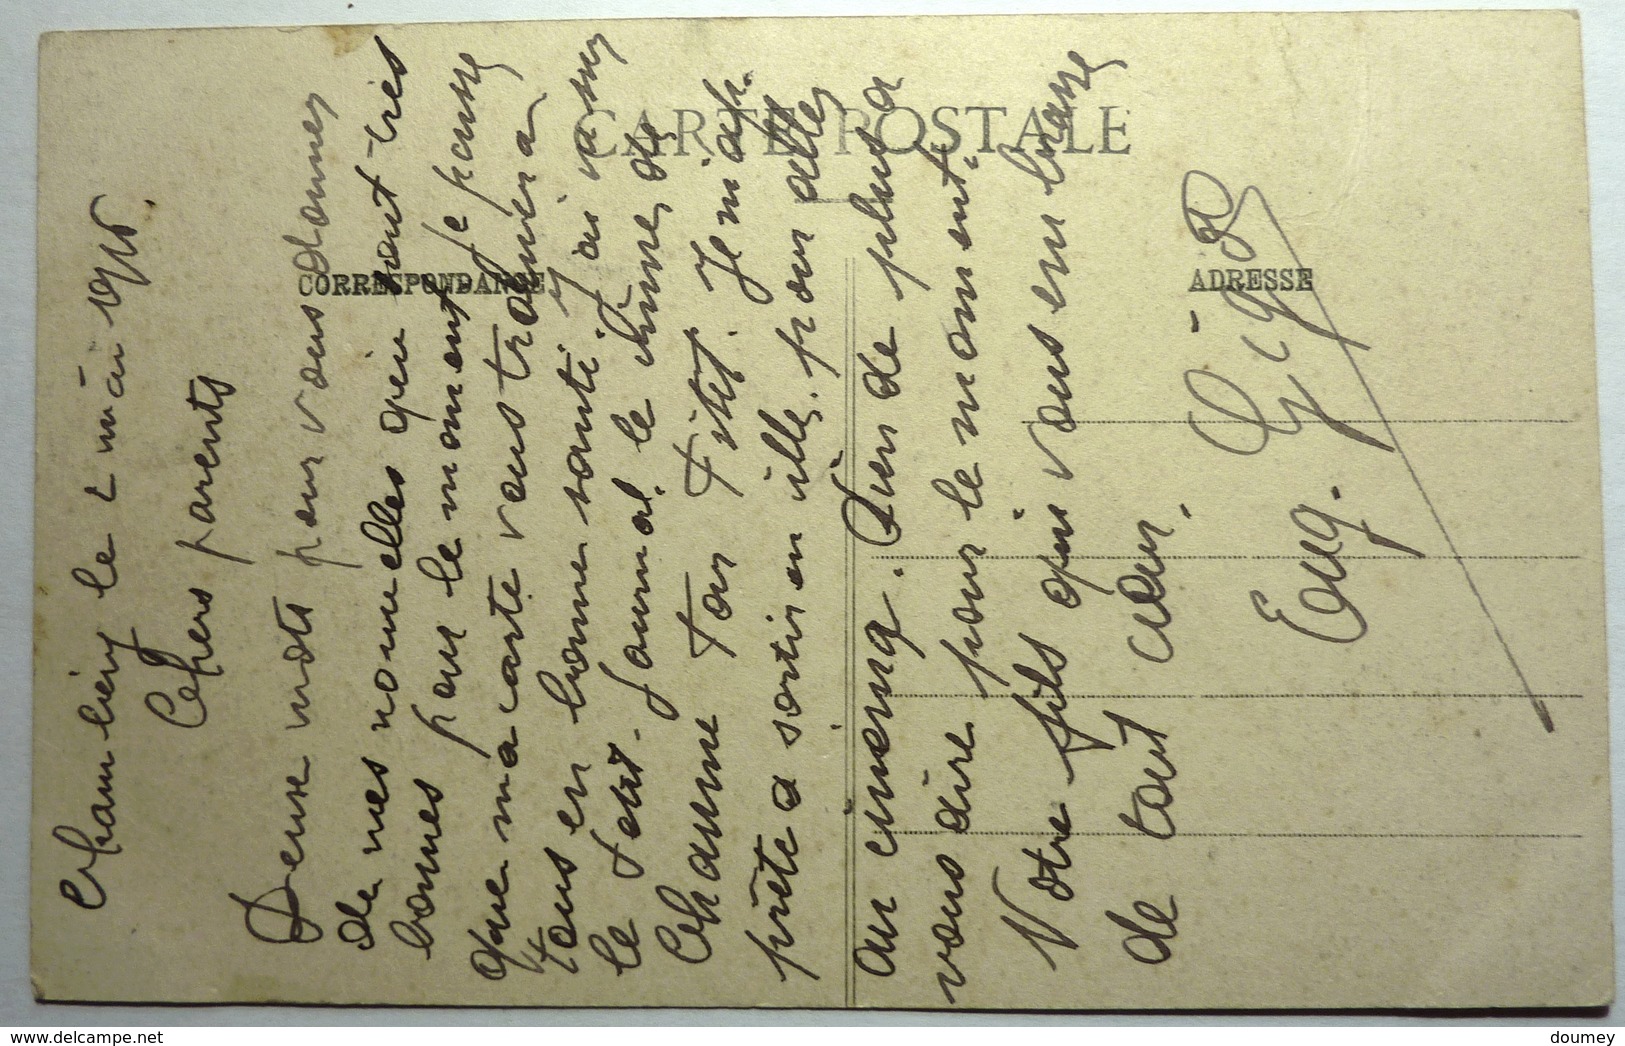 CARTE POSTALE
CORRESPONDANCE
ADRESSE
Chambéry le 2 mai 1915.
Chers parents
Deux mots pour vous donner
de mes nouvelles qui sont très
bonnes pour le moment je pense
que ma carte vous trouvera
tous en bonne santé, j'ai vu sur
le Petit Journal le crime de
Tour Fistet. Je m'ap-
prête a sortir en ville pour aller
au cinéma. Rien de plus a
vous dire pour le moment.
Votre fils qui vous embrasse
de tout cœur.
Eug.
doumey